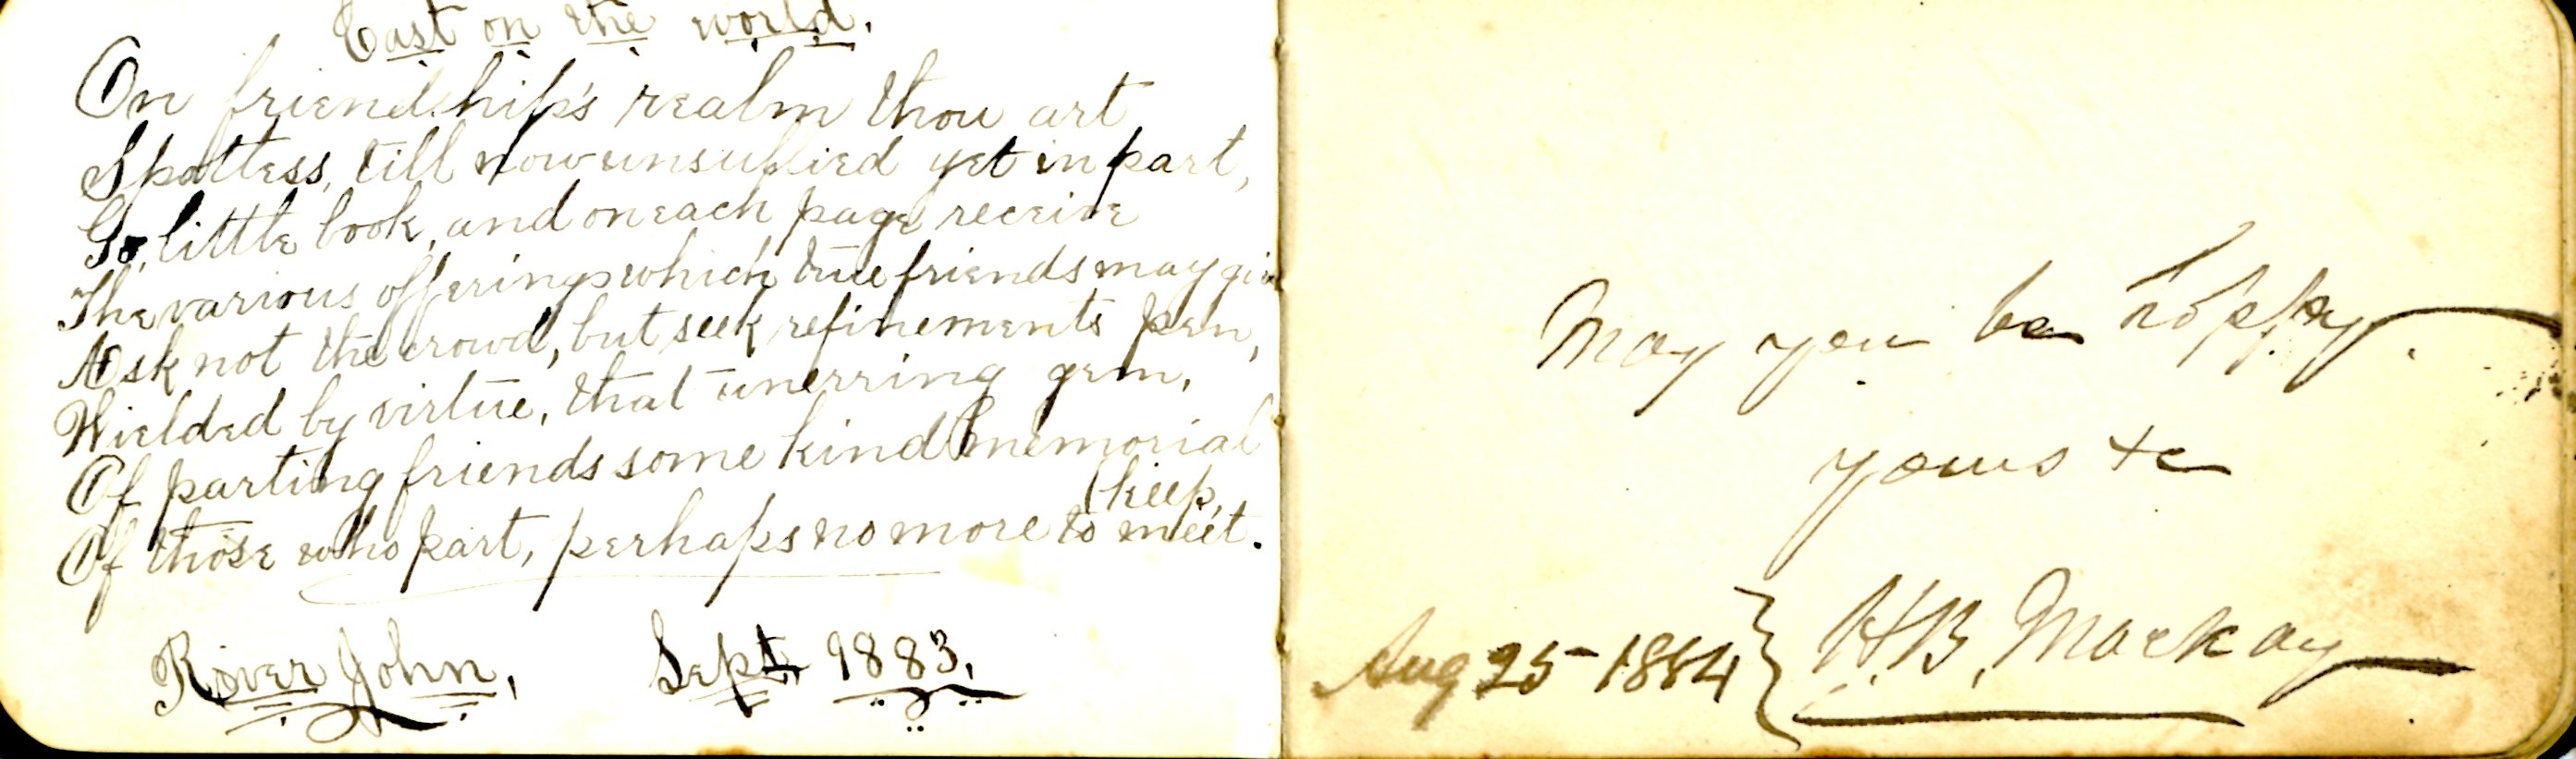 Cast on the world.
On friendship's realm thou art
Spotless, till now unsullied yet in part,
Go, little book, and on each page receive
The various offerings which true friends may give
Ask not the crowd, but seek refinements pen,
Wielded by virtue, that unerring gem,
Of parting friends some kind memorial
(keep,
Of those who part, perhaps no more to meet.
River John, Sept. 1883.
May you be happy.
yours &c
Aug 25 - 1884 } H.B. Mackay